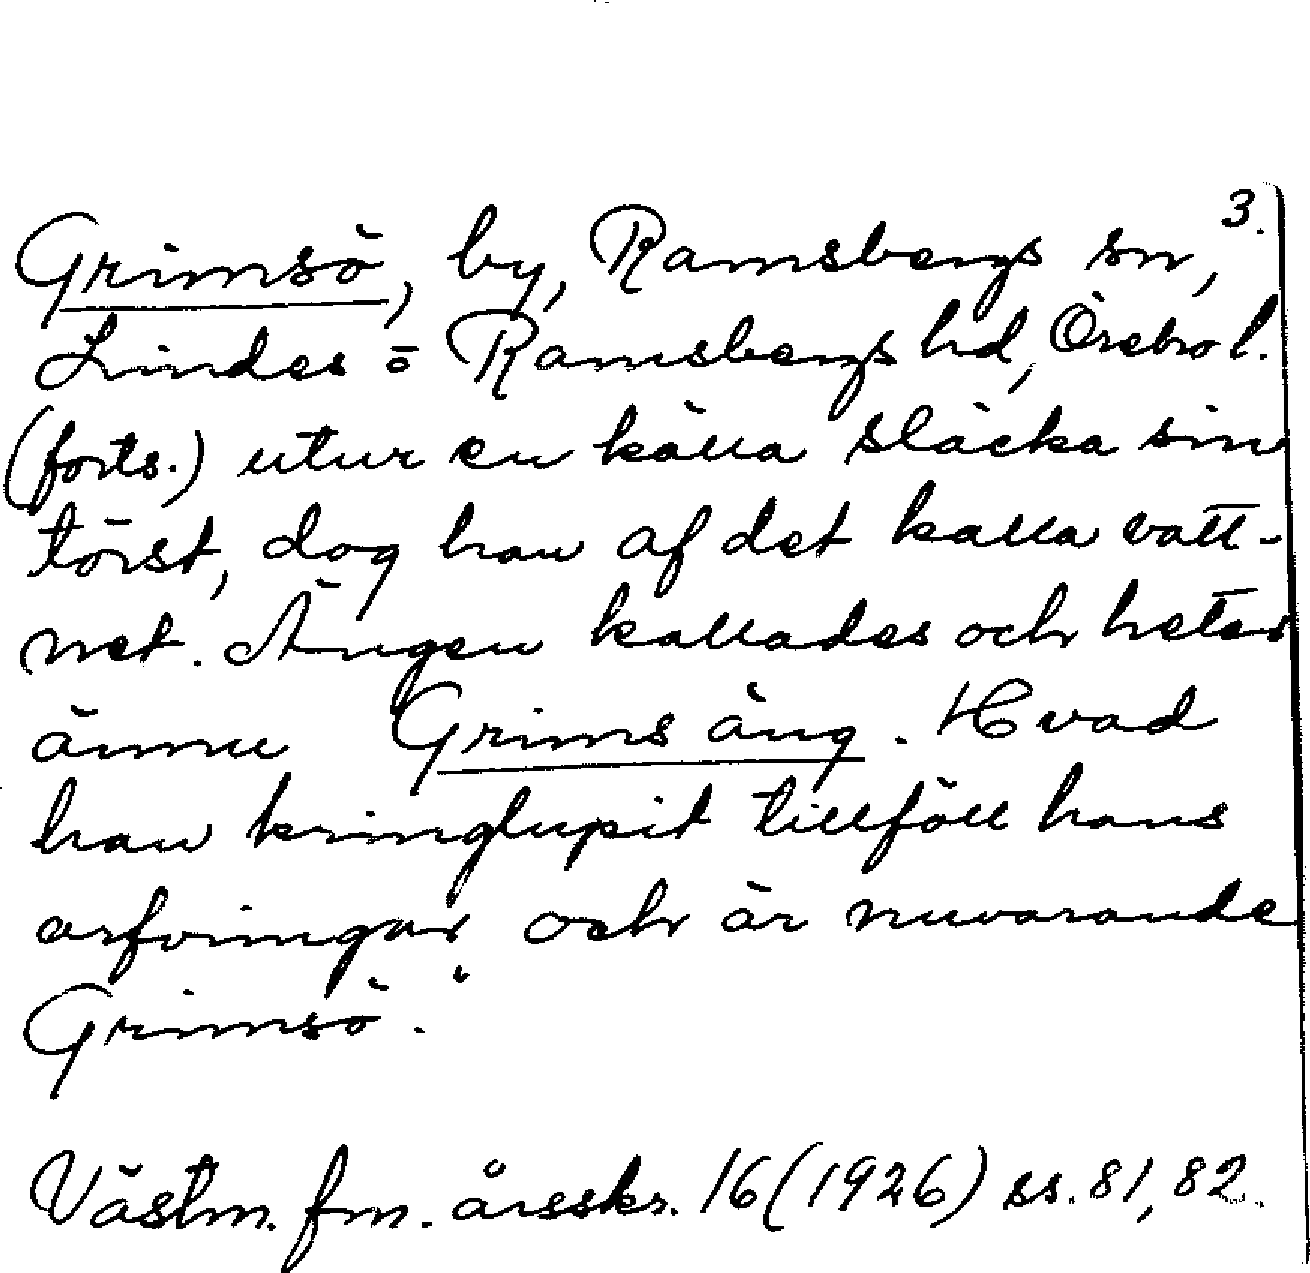 3.
Grimsö, by, Ramsbergs sn,
Lindes o Ramsbergs hd, Örebro l.
(forts.) utur en källa släcka sin
törst, dog han af det kalla vatt-
net. Ängen kallades och heter
ännu Grims äng. Hvad
han kringlupit tillföll hans
arfvingar och är nuvarande
Grimsö."
Västm. fm. årsskr. 16 (1926) ss. 81, 82.